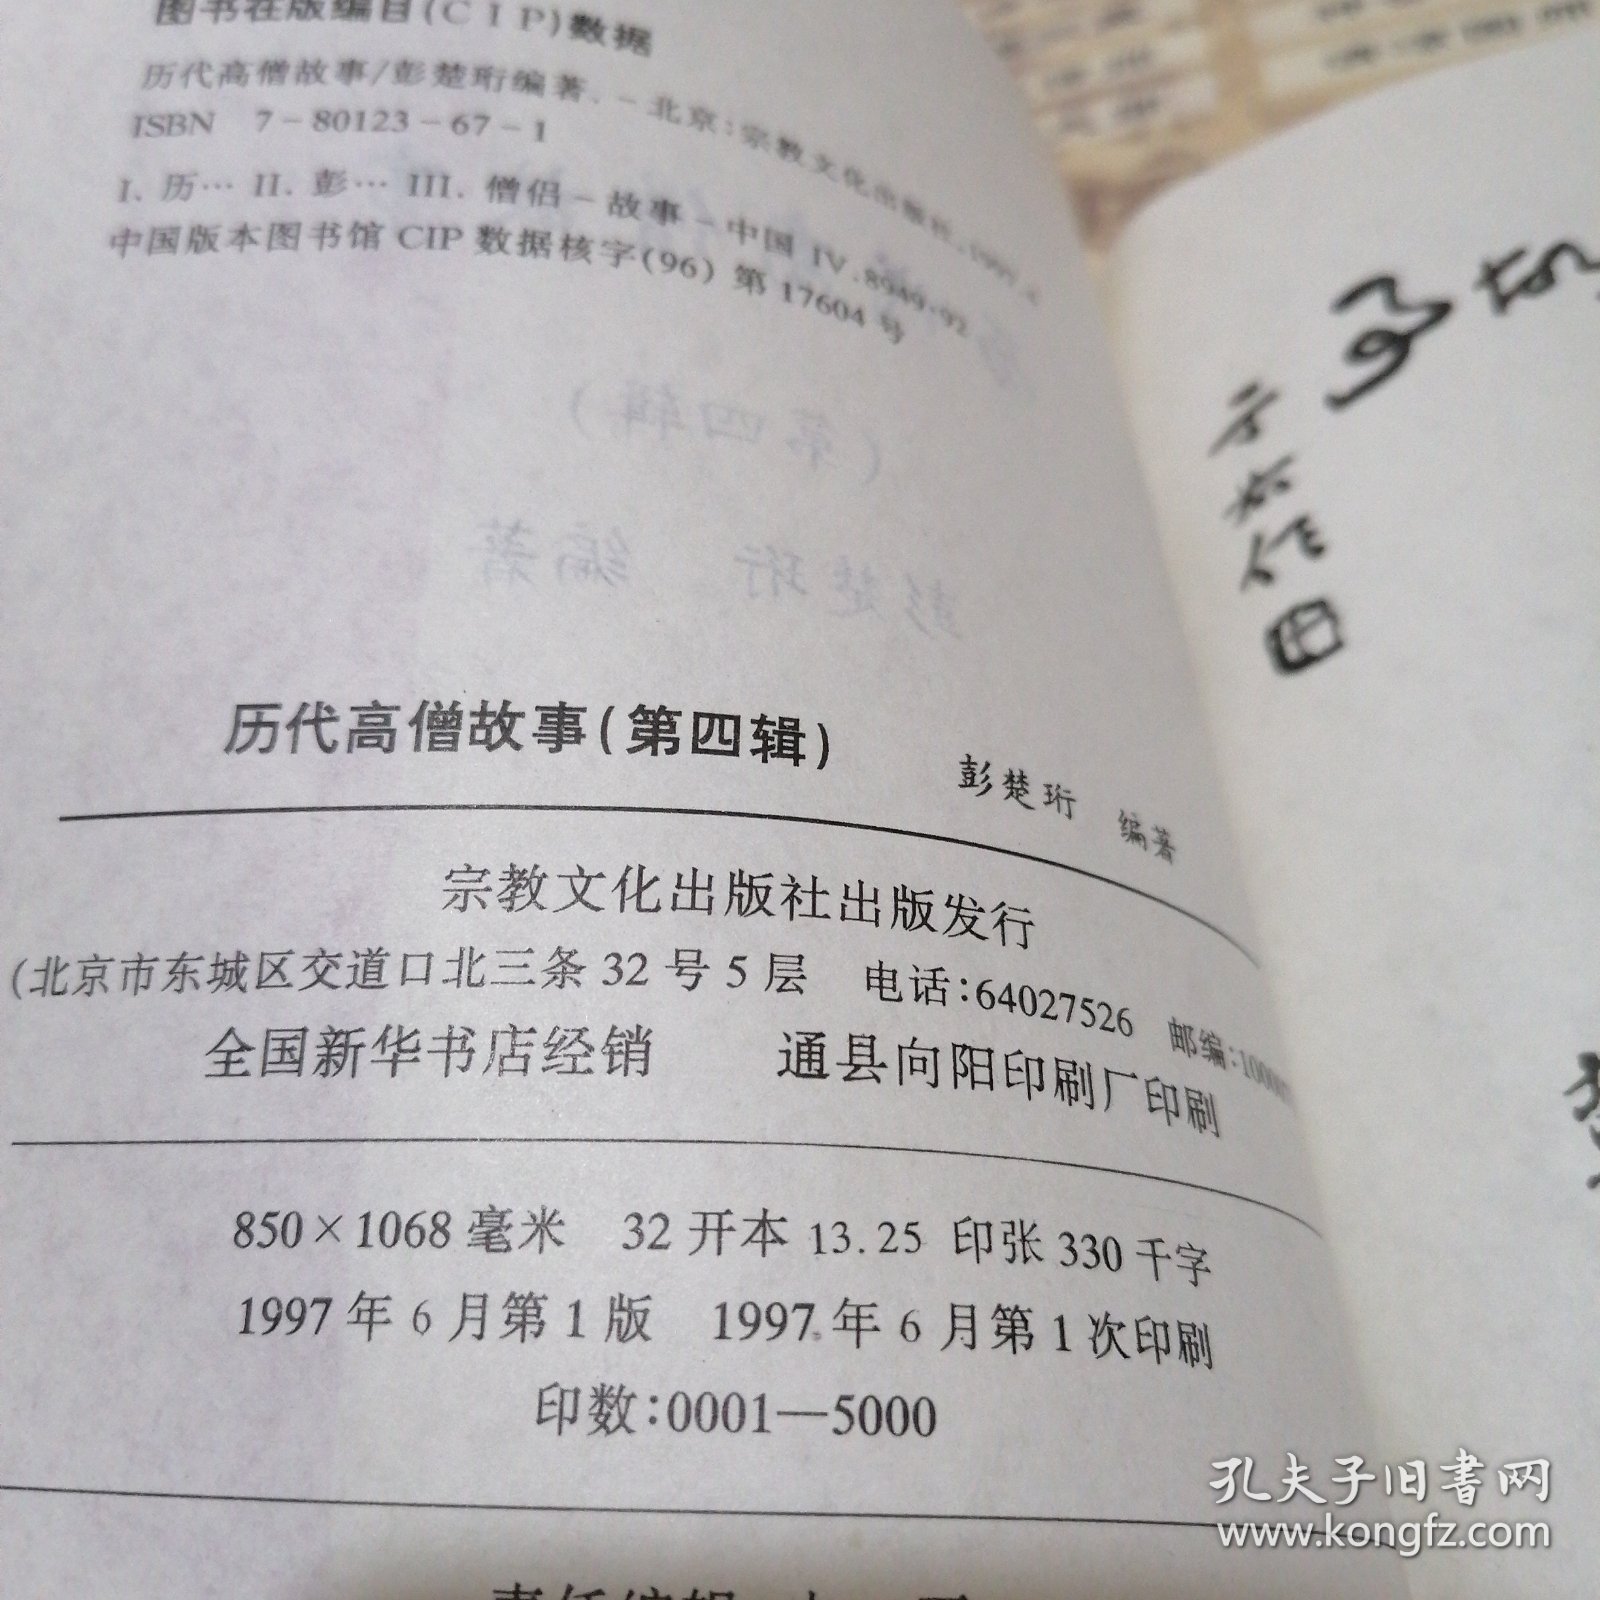 图书在版编目(CIP)数据
历代高僧故事/彭楚珩编著.－北京:宗教文化出版社,1997.
ISBN 7－80123－67－1
I.历… II.彭… III.僧侣－故事－中国 IV.8949·92
中国版本图书馆CIP数据核字(96)第17604号
(第四辑)
彭楚珩 编著
历代高僧故事(第四辑) 彭楚珩 编著
宗教文化出版社出版发行
(北京市东城区交道口北三条32号5层 电话:64027526 邮编:
全国新华书店经销 通县向阳印刷厂印刷
850×1068毫米 32开本 13.25 印张 330千字
1997年6月第1版 1997.年6月第1次印刷
印数:0001—5000
孔夫子旧书网
www.kongfz.com